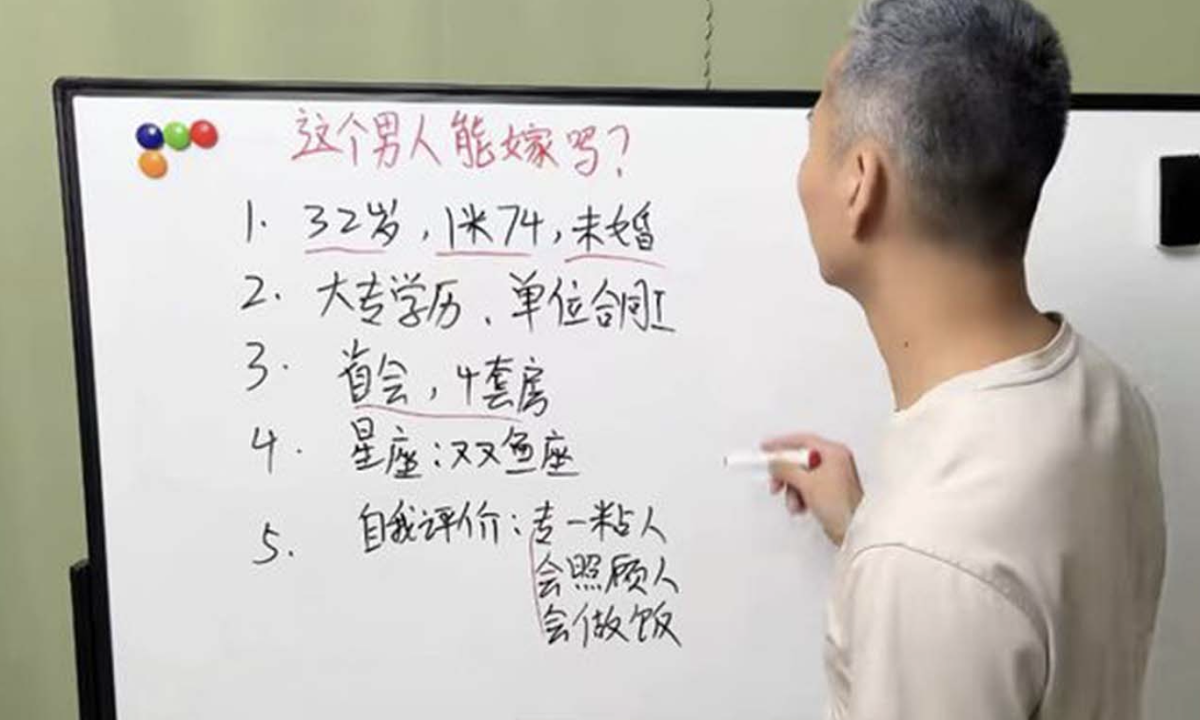 这个男人能嫁吗?
1. 32岁,1米74,未婚
2. 大专学历、单位合同工
3. 省会,4套房
4. 星座:双鱼座
5. 自我评价:专一粘人
会照顾人
会做饭